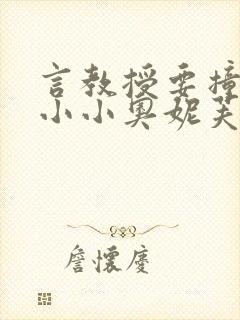 言教授要撞
小小奥妮芙
詹怀庆